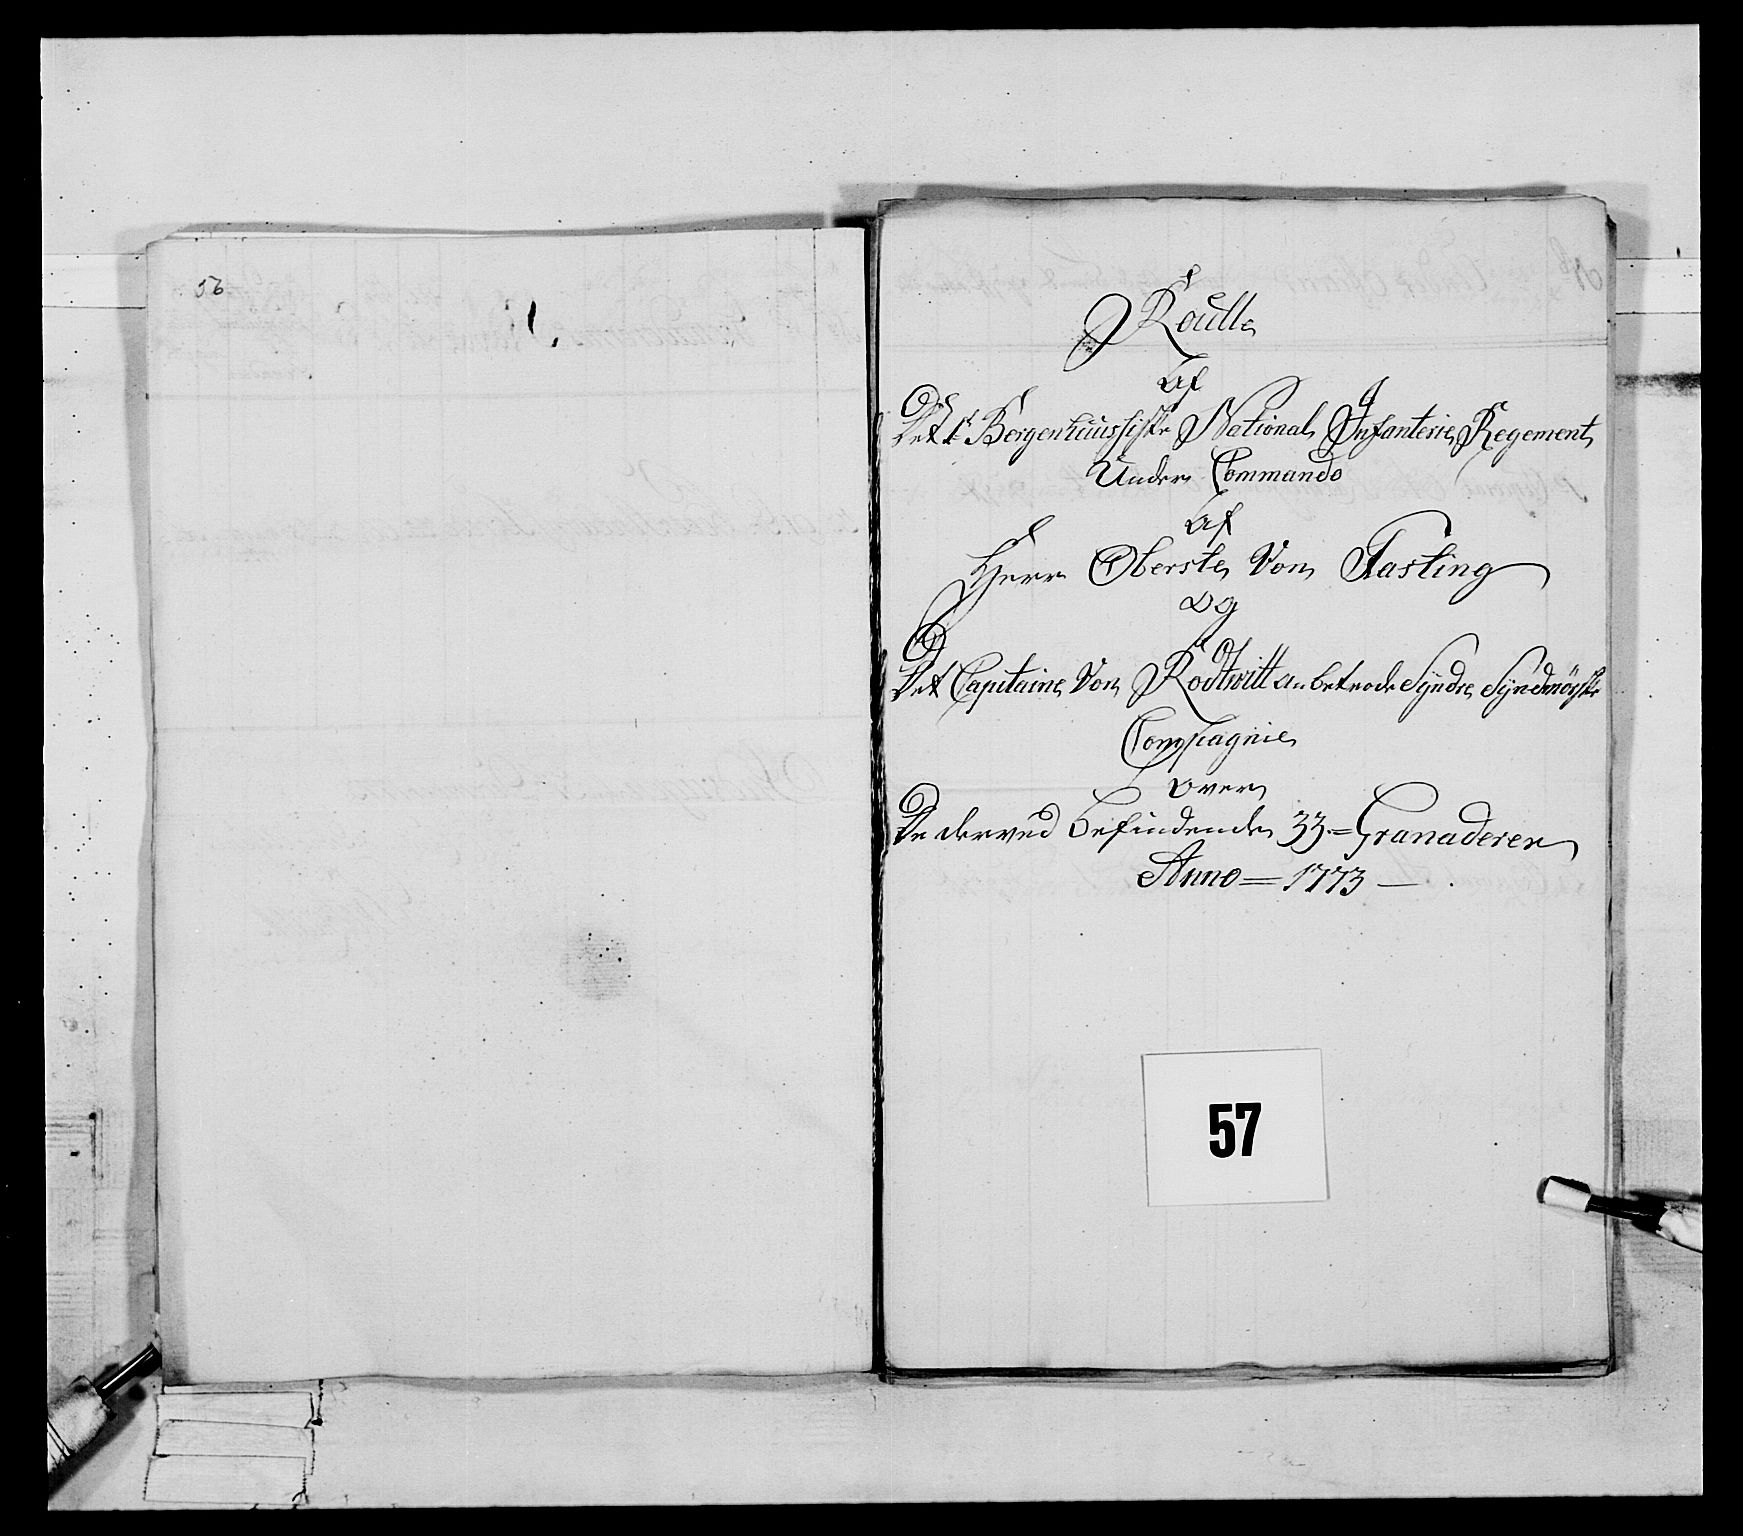 56
Roulle
Af
Det 1te Bergenhuusiske National Infanterie Regement
Under Commando
Af
Herr Oberste Von Fasting
og
Det Capitaine Von Rodtwitt anbetrode Syndre Syndmörske
Compagnie
over
De derved befindende 33 = Granaderer
Anno = 1773 —
57